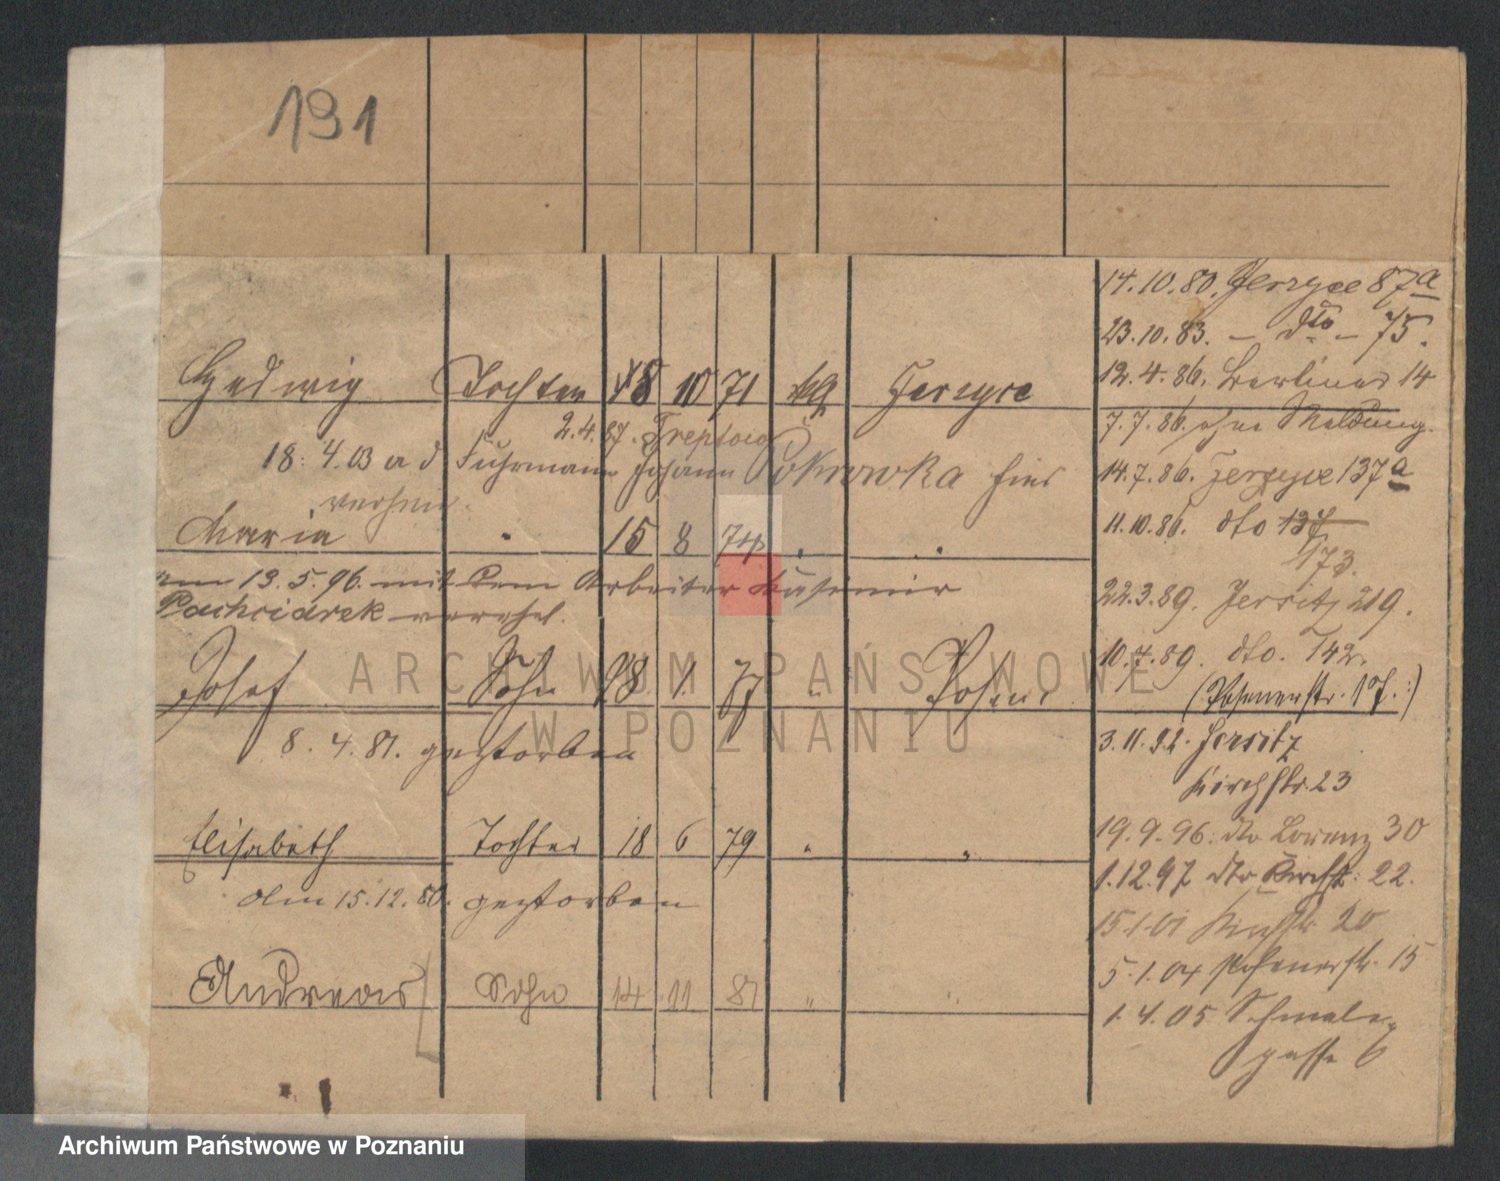 191
Hedwig Tochter 18 10 71 kg Jerzyce
2.4.87. Treptow
18. 4. 03 a d Fuhrmann Johann hier
verhei.
Maria " 15 8 74 " "
am 13.5.96. mit dem Arbeiter Kasimir
Pachciarek verehel.
Josef Sohn 18 1. 77 " Posen
8. 4. 81. gestorben
Elisabeth Tochter 18 6 79 " "
Am 15.12.80. gestorben
Andreas Sohn 14 11 81 " "
14.10.80. Jerzyce 87a
23.10.83. - dto - 75.
12.4.86. Berliner 14
7.7.86. ohne Meldung.
14.7.86. Jerzyce 137a
11.10.86. dto 137
173.
22.3.89. Jersitz 219.
10.7.89. dto. 142.
(Posenerstr. 17.:)
3.11.92. Jersitz
Kirchstr. 23
19.9.96. dto Lorenz 30
1.12.97 dto Kirchst: 22.
15.1.01 Kirchstr. 20
5.1.04 Posenerstr. 15
1.4.05 Schmale
gasse 6
ARCHIWUM PAŃSTWOWE
W POZNANIU
Archiwum Państwowe w Poznaniu